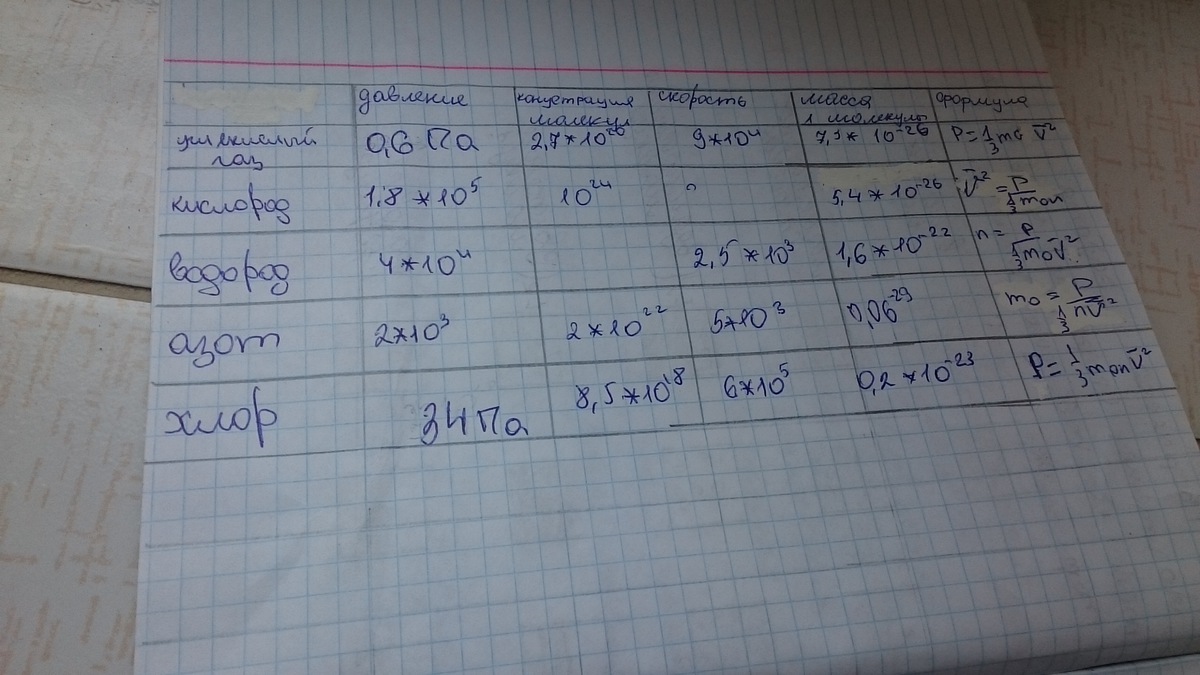 давление концетрация молекул скорость масса 1 молекулы формула
углекислый газ 0,6 Па 2,7*10²⁰ 9*10⁴ 7,3* 10⁻²⁶ P = 1/3 m₀ v̄²
кислород 1,8 *10⁵ 10²⁴ 5,4*10⁻²⁶ v̄² = P / 1/3 m₀n
водород 4*10⁴ 2,5*10³ 1,6*10⁻²² n = P / 1/3 m₀v̄²
азот 2*10³ 2*10²² 5*10³ 0,06⁻²⁹ m₀ = P / 1/3 nv̄²
хлор 34Па 8,5*10¹⁸ 6*10⁵ 0,2*10⁻²³ P = 1/3 m₀nv̄²